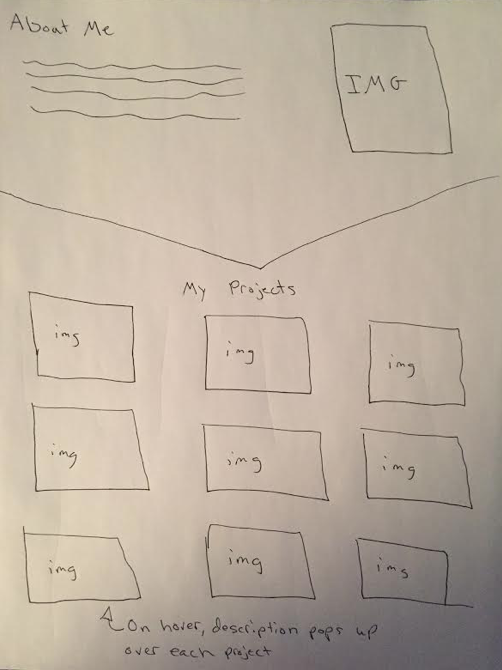 About Me
IMG
My Projects
img
img
img
img
img
img
img
img
img
On hover, description pops up
over each project